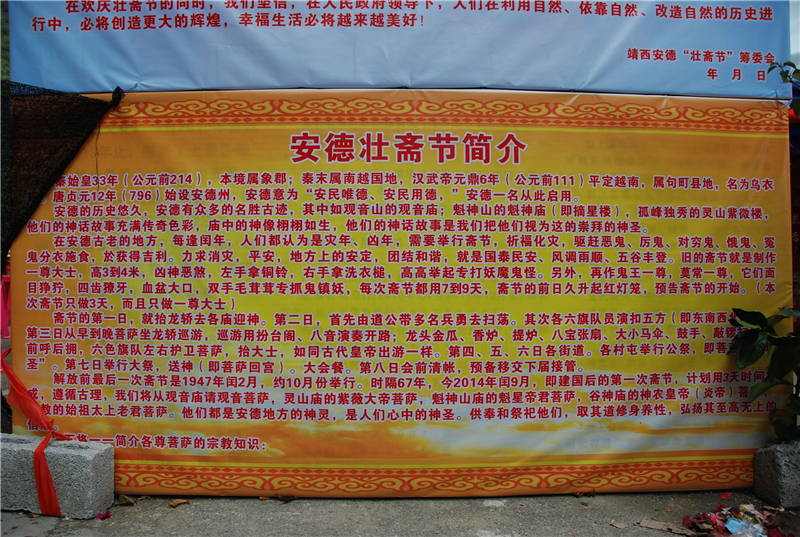 在欢庆壮斋节的同时，我们坚信，在人民政府领导下，人们在利用自然、依靠自然、改造自然的历史进
行中，必将创造更大的辉煌，幸福生活必将越来越美好！
靖西安德“壮斋节”筹委会
年 月 日
安德壮斋节简介
秦始皇33年（公元前214），本境属象郡；秦末属南越国地，汉武帝元鼎6年（公元前111）平定越南，属句町县地，名为乌衣
唐贞元12年（796）始设安德州，安德意为“安民唯德、安民用德，”安德一名从此启用。
安德的历史悠久，安德有众多的名胜古迹，其中如观音山的观音庙；魁神山的魁神庙（即摘星楼），孤峰独秀的灵山紫微楼，
他们的神话故事充满传奇色彩，庙中的神像栩栩如生，他们的神话故事是我们把他们视为这的崇拜的神圣。
在安德古老的地方，每逢闰年，人们都认为是灾年、凶年，需要举行斋节，祈福化灾，驱赶恶鬼、厉鬼、对穷鬼、饿鬼、冤
鬼分衣施食，於获得吉利。力求消灾，平安，地方上的安定，团结和谐，就是国泰民安、风调雨顺、五谷丰登。旧的斋节就是制作
一尊大士，高3到4米，凶神恶煞，左手拿铜铃，右手拿洗衣槌，高高举起专打妖魔鬼怪。另外，再作鬼王一尊，莫常一尊，它们面
目狰狞，四齿獠牙，血盆大口，双手毛茸茸专抓鬼镇妖，每次斋节都用7到9天，斋节的前日久升起红灯笼，预告斋节的开始。（本
次斋节只做3天，而且只做一尊大士）
斋节的第一日，就抬龙轿去各庙迎神。第二日，首先由道公带多名兵勇去扫荡。其次各六旗队员演扣五方（即东南西
第三日从早到晚菩萨坐龙轿巡游，巡游用扮台阁、八音演奏开路；龙头金瓜、香炉、提炉、八宝张扇、大小马伞、鼓手、敲锣
前呼后拥，六色旗队左右护卫菩萨，抬大士，如同古代皇帝出游一样。第四、五、六日各街道。各村屯举行公祭，即菩
圣”。第七日举行大祭，送神（即菩萨回宫）。大会餐。第八日会前清帐，预备移交下届接管。
解放前最后一次斋节是1947年闰2月，约10月份举行。时隔67年，今2014年闰9月，即建国后的第一次斋节，计划用3天时间
成，遵循古理，我们将从观音庙请观音菩萨，灵山庙的紫薇大帝菩萨，魁神山庙的魁星帝君菩萨，谷神庙的神农皇帝（炎帝）菩
教的始祖太上老君菩萨。他们都是安德地方的神灵，是人们心中的神圣。供奉和祭祀他们，取其道修身养性，弘扬其至高无上的
信
将一一简介各尊菩萨的宗教知识：